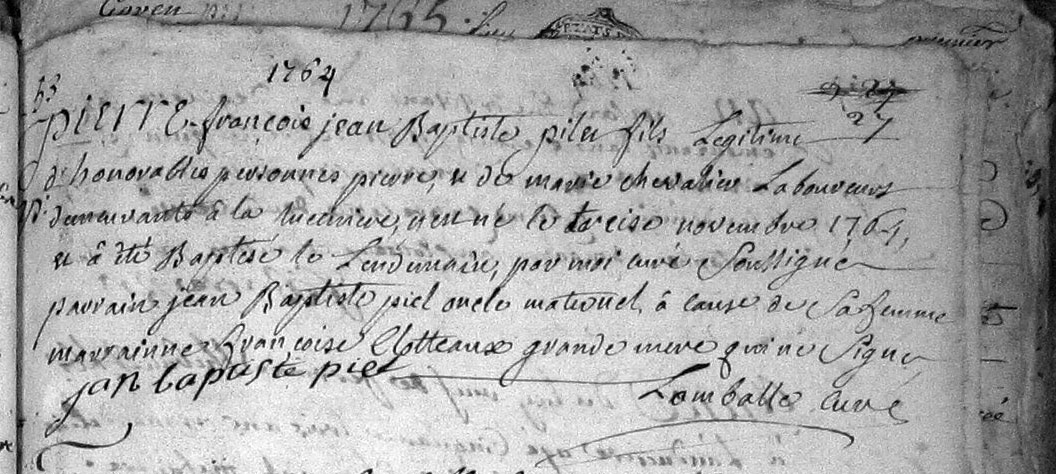 1765.
1764
27
pierre françois jean Baptiste piler fils Legitime
d'honorables personnes pierre, & de marie chevalier Laboureurs
demeurants à la est né le treise novembre 1764,
et à été Baptisé le Lendemain, par moi curé Soussigné
parrain jean Baptiste piel oncle maternel, à cause de Sa femme
marrainne françoise Clotteaux grande mere qui ne Signe
jan bapaste piel Lamballe curé